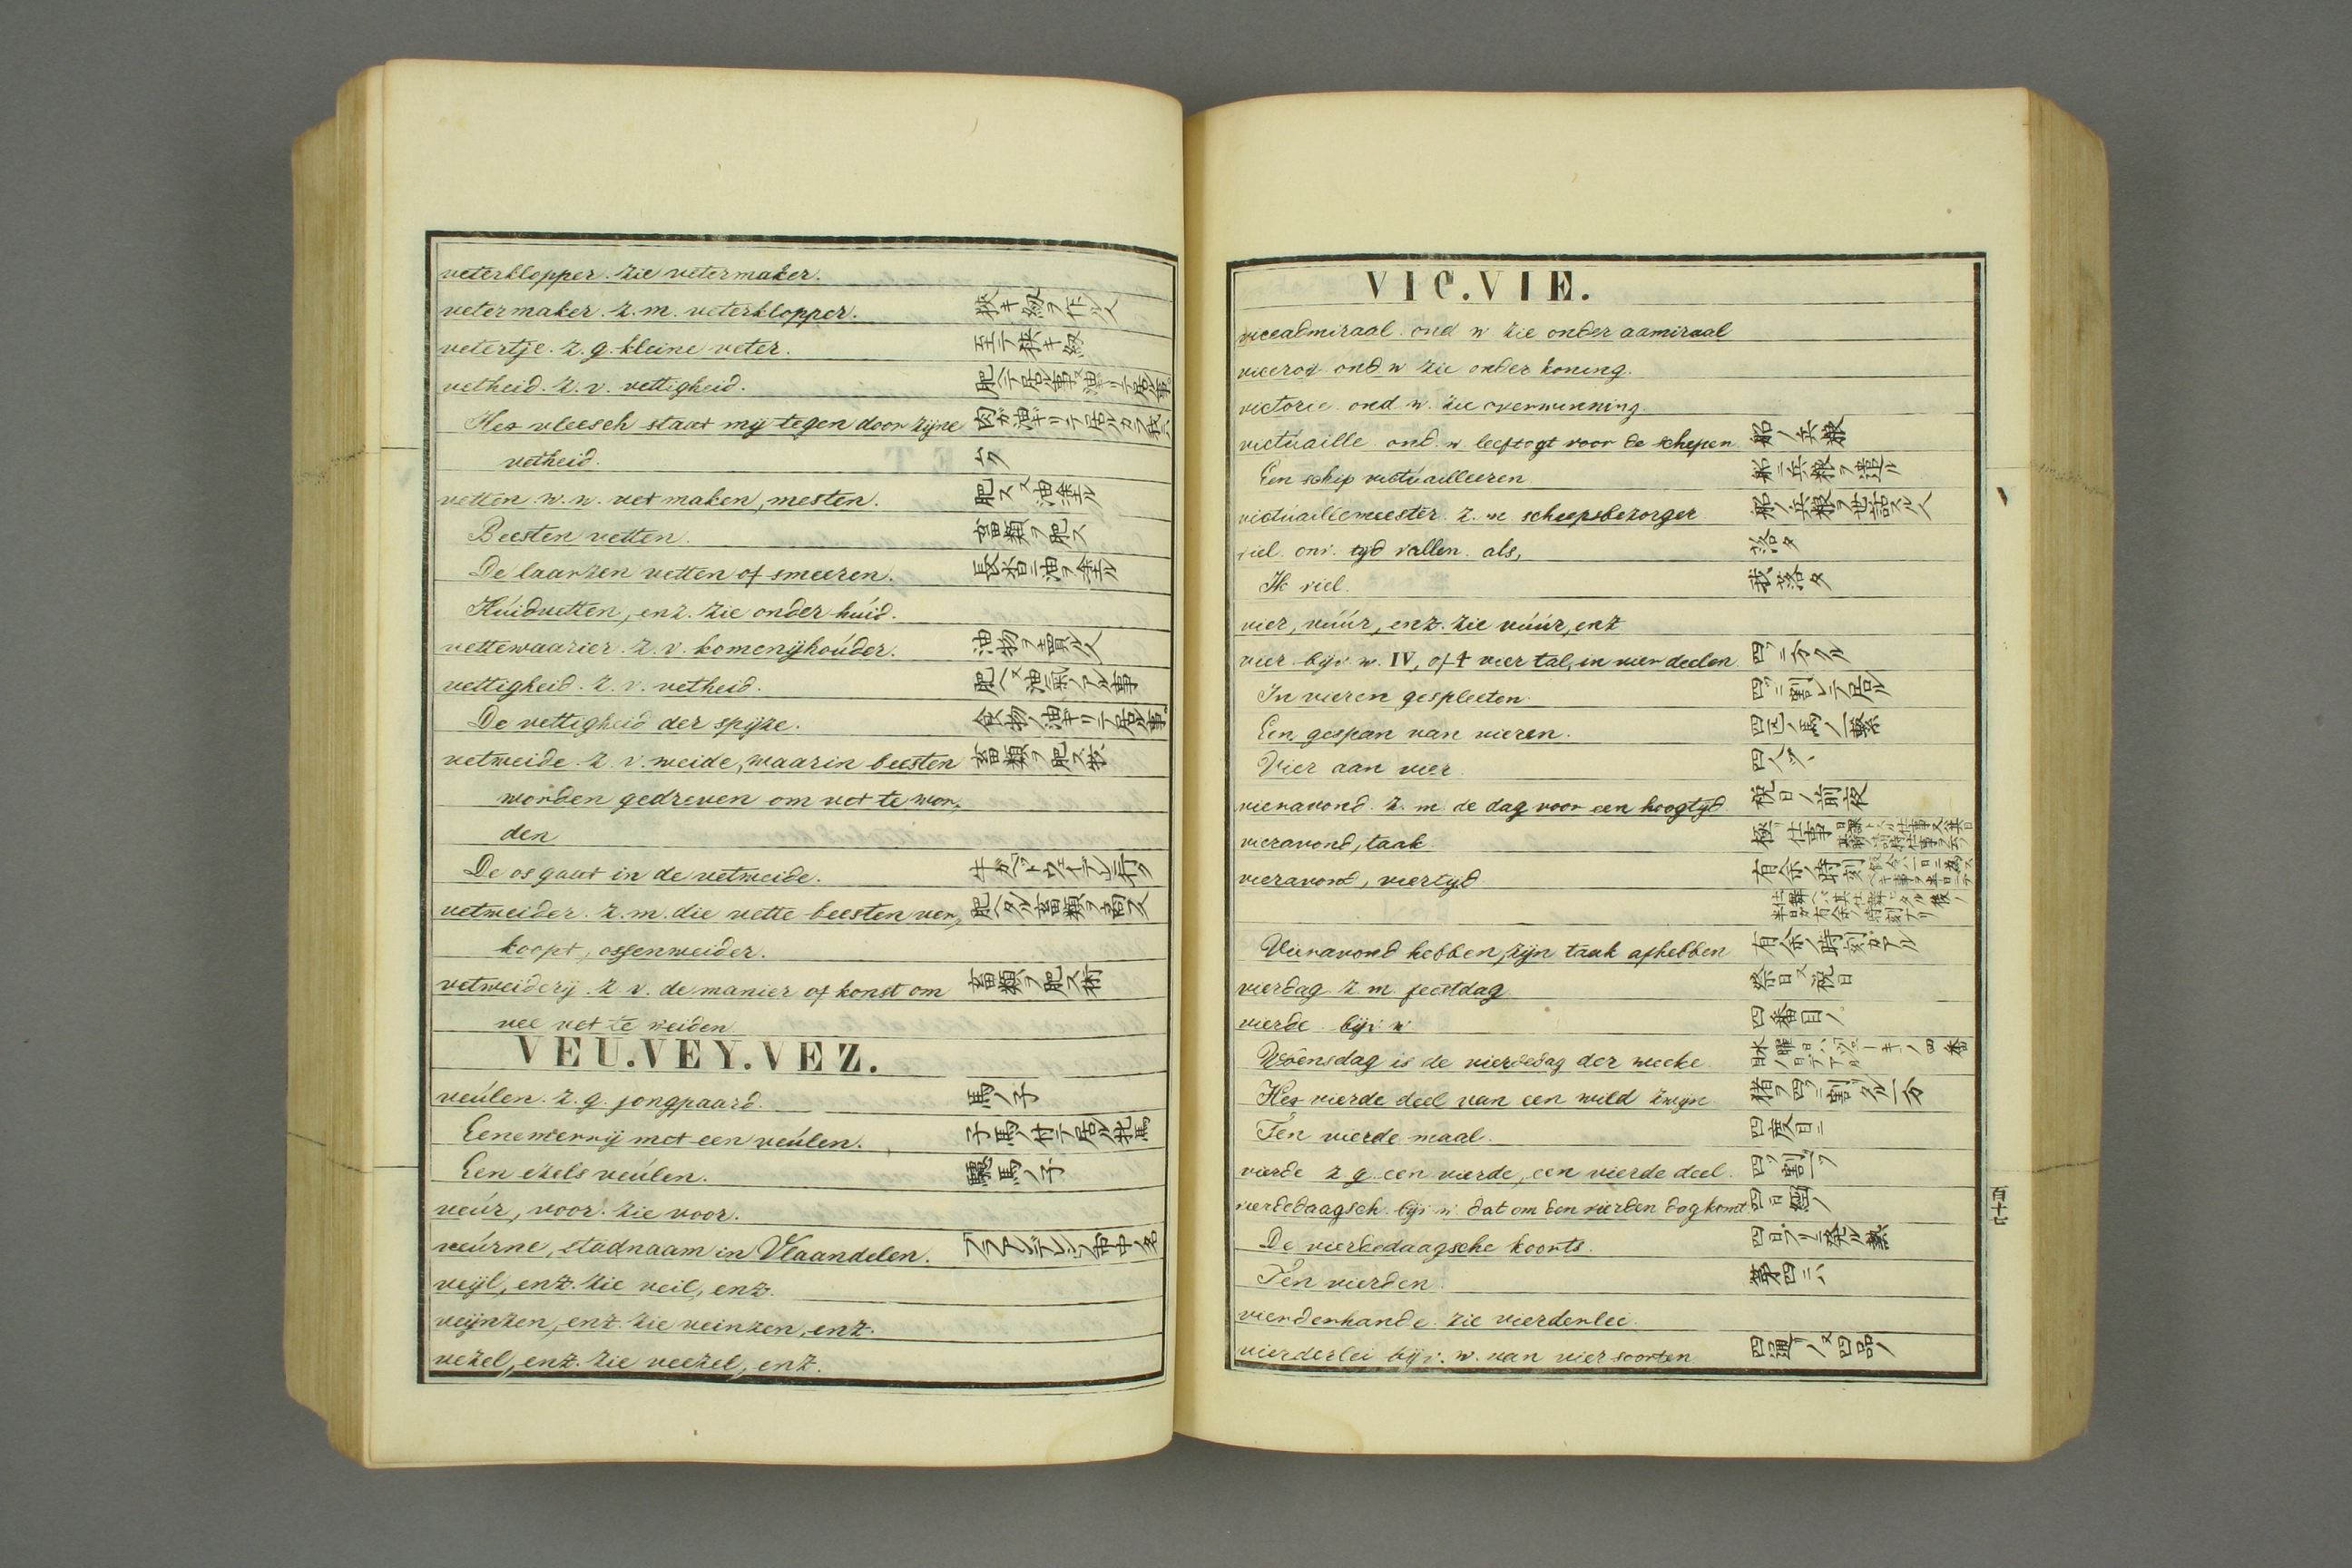 veterklopper. zie vetermaker.
vetermaker. z. m. veterklopper. 狭キ紐ヲ作ル人
vetertje. z. g. kleine veter. 至テ狭キ紐
vetheid. z. v. vettigheid. 肥へテ居ル事又油ギリテ居ル事
Het vleesch staat mij tegen door zijne 肉ガ油ギリテ居ルタ
vetheid.
vetten. w. w. vet maken, mesten. 肥ス又油塗ル
Beesten vetten. 畜類ヲ肥ス
De laarzen vetten of smeeren. 長沓ニ油ヲ塗ル
Húidvetten, enz. zie onder húid.
vettewaarier. z. v. komenijhoúder. 油物ヲ賣ル人
vettigheid. z. v. vetheid. 肥へ又油氣ノアル事
De vettigheid der spijze. 食物ノ油ギリテ居ル事
vetweide. z. v. weide, waarin beesten 畜類ヲ肥ス牧
worden gedreven om vet te wor,
den
De os gaat in de vetweide. 牛ガベットウェイデニ行ク
vetweider. z. m. die vette beesten ver, 肥ヘタル畜類ヲ商ス
koopt, ossenweider.
vetweiderij. z. v. de manier of konst om 畜類ヲ肥ス術
vee vet te weiden
VEU.VEY.VEZ.
veúlen. z. g. jong paard. 馬ノ子
Eene merrij met een veúlen. 子馬ノ付テ居ル牝馬
Een ezels veúlen. 驢馬ノ子
veúr, voor. zie voor.
veúrne, stadnaam in Vlaandelen.
veijl, enz. zie veil, enz.
veijnzen, enz. zie veinzen, enz.
vezel, enz. zie veezel, enz.
VIC.VIE.
viceadmiraal. ond w zie onder aamiraal
viceroy. ond w zie onder koning.
victorie. ond w. zie overwinning.
victúaille. ond. w. leeftogt voor de schepen 船ノ兵粮
Een schip victúailleeren 船ニ兵粮ヲ遣ル
victúaillemeester. z. m scheepsbezorger 船ノ兵粮ヲ世話スル人
viel. onv. tyd vallen. als, 落タ
Ik viel. 我落タ
vier, vúúr, enz. zie vúúr, enz
vier. bijv. w. IV, of 4 vier tal, in vier deelen 四ツニ分タル
In vieren gespleeten. 四ツニ割レテ居ル
Een gespan van vieren. 四疋ノ馬ノ一繋
Vier aan vier 四人ヅヽ
vieravond. z. m. de dag voor een hoogtyd 祝日ノ前夜
vieravond, taak. 極リ仕事
vieravond, viertyd 有余ノ時刻
Vieravond hebben, zijn taak afhebben 有余ノ時刻ガアル
vierdag z. m. feestdag 祭日又祝日
vierde. bijv. w 四番目ノ
Woensdag is de vierde dag der weeke
Het vierde deel van een wild zwijn 猪ヲ四ツニ割タル一分
Ten vierde maal. 四度目ニ
vierde z. g. een vierde, een vierde deel. 四ツ割一ツ
vierdedaagsch. bijv. w. dat om den vierden dag komt
De vierdedaagsche koorts. 四日ブリニ発ル熱
Ten vierden. 第四ニハ
vierderhande. zie vierderlei.
vierderlei bijv. w. van vier soorten 四通リノ又四品ノ
百十七